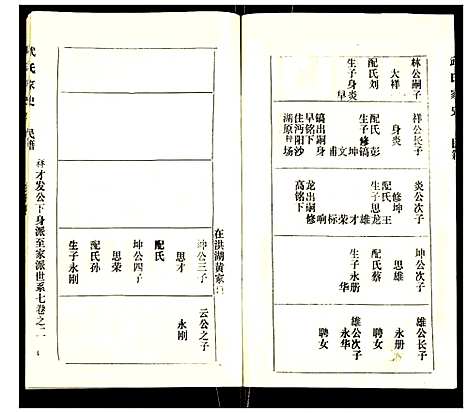 林公嗣子
大祥
配氏刘
生子身炎
早
祥公长子
身炎
配氏彭
生子镐坤文
镐出嗣身
早铭下
住沔阳
湖原种场
炎公次子
修坤
配氏王
生子思龙
雄才荣标响
龙出嗣修
高铭下
坤公次子
思雄
配氏蔡
生子永册
永华
雄公长子
永册
聘女
雄公次子
永华
聘女
在洪湖黄家
坤公三子
思才
配氏
坤公四子
思荣
配氏孙
生子永刚
云公之子
永刚
氏家史
民籍
祥才发公下身派至家派世系七卷之二